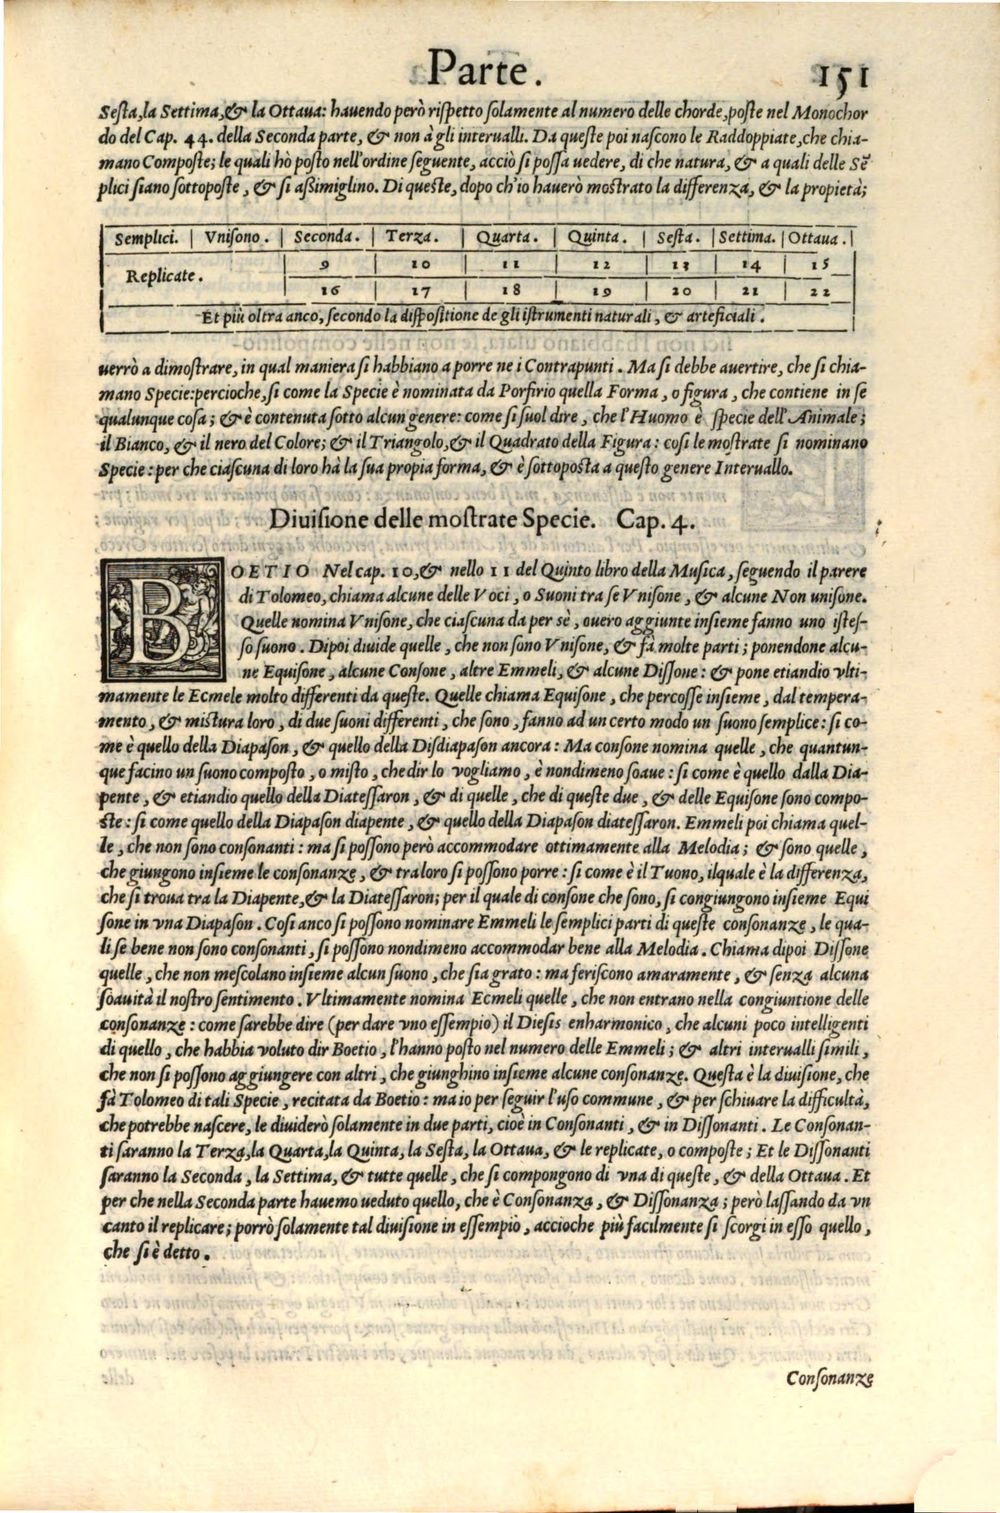 Parte. 151
Seſta, la Settima, & la Ottaua: hauendo però riſpetto ſolamente al numero delle chorde, poſte nel Monochor
do del Cap. 44. della Seconda parte, & non à gli interualli. Da queſte poi naſcono le Raddoppiate, che chia-
mano Compoſte; le quali hò poſto nell'ordine ſeguente, acciò ſi poſſa uedere, di che natura, & a quali delle Sẽ
plici ſiano ſottopoſte, & ſi aßimiglino. Di queſte, dopo ch'io hauerò moſtrato la differenza, & la propietà;
Semplici. | Vniſono. | Seconda. | Terza. | Quarta. | Quinta. | Seſta. | Settima. | Ottaua. |
Replicate. 9 | 10 | 11 | 12 | 13 | 14 | 15
16 | 17 | 18 | 19 | 20 | 21 | 22
Et più oltra anco, ſecondo la diſpoſitione de gli iſtrumenti naturali, & arteficiali.
uerrò a dimoſtrare, in qual maniera ſi habbiano a porre ne i Contrapunti. Ma ſi debbe auertire, che ſi chia-
mano Specie: percioche, ſi come la Specie è nominata da Porfirio quella Forma, o figura, che contiene in ſe
qualunque coſa; & è contenuta ſotto alcun genere: come ſi ſuol dire, che l'Huomo è ſpecie dell'Animale;
il Bianco, & il nero del Colore; & il Triangolo, & il Quadrato della Figura: coſi le moſtrate ſi nominano
Specie: per che ciaſcuna di loro hà la ſua propia forma, & è ſottopoſta a queſto genere Interuallo.
Diuiſione delle moſtrate Specie. Cap. 4.
BOETIO Nel cap. 10, & nello 11 del Quinto libro della Muſica, ſeguendo il parere
di Tolomeo, chiama alcune delle Voci, o Suoni tra ſe Vniſone, & alcune Non uniſone.
Quelle nomina Vniſone, che ciaſcuna da per sè, ouero aggiunte inſieme fanno uno iſteſ-
ſo ſuono. Dipoi diuide quelle, che non ſono Vniſone, & fà molte parti; ponendone alcu-
ne Equiſone, alcune Conſone, altre Emmeli, & alcune Diſſone: & pone etiandio vlti-
mamente le Ecmele molto differenti da queſte. Quelle chiama Equiſone, che percoſſe inſieme, dal tempera-
mento, & miſtura loro, di due ſuoni differenti, che ſono, fanno ad un certo modo un ſuono ſemplice: ſi co-
me è quello della Diapaſon, & quello della Diſdiapaſon ancora: Ma conſone nomina quelle, che quantun-
que facino un ſuono compoſto, o miſto, che dir lo vogliamo, è nondimeno ſoaue: ſi come è quello dalla Dia-
pente, & etiandio quello della Diateſſaron, & di quelle, che di queſte due, & delle Equiſone ſono compo-
ſte: ſi come quello della Diapaſon diapente, & quello della Diapaſon diateſſaron. Emmeli poi chiama quel-
le, che non ſono conſonanti: ma ſi poſſono però accommodare ottimamente alla Melodia; & ſono quelle,
che giungono inſieme le conſonanze, & tra loro ſi poſſono porre: ſi come è il Tuono, ilquale è la differenza,
che ſi troua tra la Diapente, & la Diateſſaron; per il quale di conſone che ſono, ſi congiungono inſieme Equi
ſone in vna Diapaſon. Coſi anco ſi poſſono nominare Emmeli le ſemplici parti di queſte conſonanze, le qua-
li ſe bene non ſono conſonanti, ſi poſſono nondimeno accommodar bene alla Melodia. Chiama dipoi Diſſone
quelle, che non meſcolano inſieme alcun ſuono, che ſia grato: ma feriſcono amaramente, & ſenza alcuna
ſoauità il noſtro ſentimento. Vltimamente nomina Ecmeli quelle, che non entrano nella congiuntione delle
conſonanze: come ſarebbe dire (per dare vno eſſempio) il Dieſis enharmonico, che alcuni poco intelligenti
di quello, che habbia voluto dir Boetio, l'hanno poſto nel numero delle Emmeli; & altri interualli ſimili,
che non ſi poſſono aggiungere con altri, che giunghino inſieme alcune conſonanze. Queſta è la diuiſione, che
fà Tolomeo di tali Specie, recitata da Boetio: ma io per ſeguir l'uſo commune, & per ſchiuare la difficultà,
che potrebbe naſcere, le diuiderò ſolamente in due parti, cioè in Conſonanti, & in Diſſonanti. Le Conſonan-
ti ſaranno la Terza, la Quarta, la Quinta, la Seſta, la Ottaua, & le replicate, o compoſte; Et le Diſſonanti
ſaranno la Seconda, la Settima, & tutte quelle, che ſi compongono di vna di queſte, & della Ottaua. Et
per che nella Seconda parte hauemo ueduto quello, che è Conſonanza, & Diſſonanza; però laſſando da vn
canto il replicare; porrò ſolamente tal diuiſione in eſſempio, accioche più facilmente ſi ſcorgi in eſſo quello,
che ſi è detto.
Conſonanze